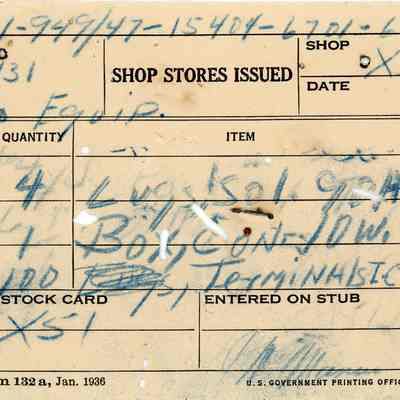 1-949/47-15404-L701-L
SHOP
X
31
SHOP STORES ISSUED
DATE
Equip.
QUANTITY ITEM
4 Lug, Sol.
1 Box, Conf 10W.
100 Terminals
STOCK CARD ENTERED ON STUB
X51
m 132a, Jan. 1936 U. S. GOVERNMENT PRINTING OFFIC